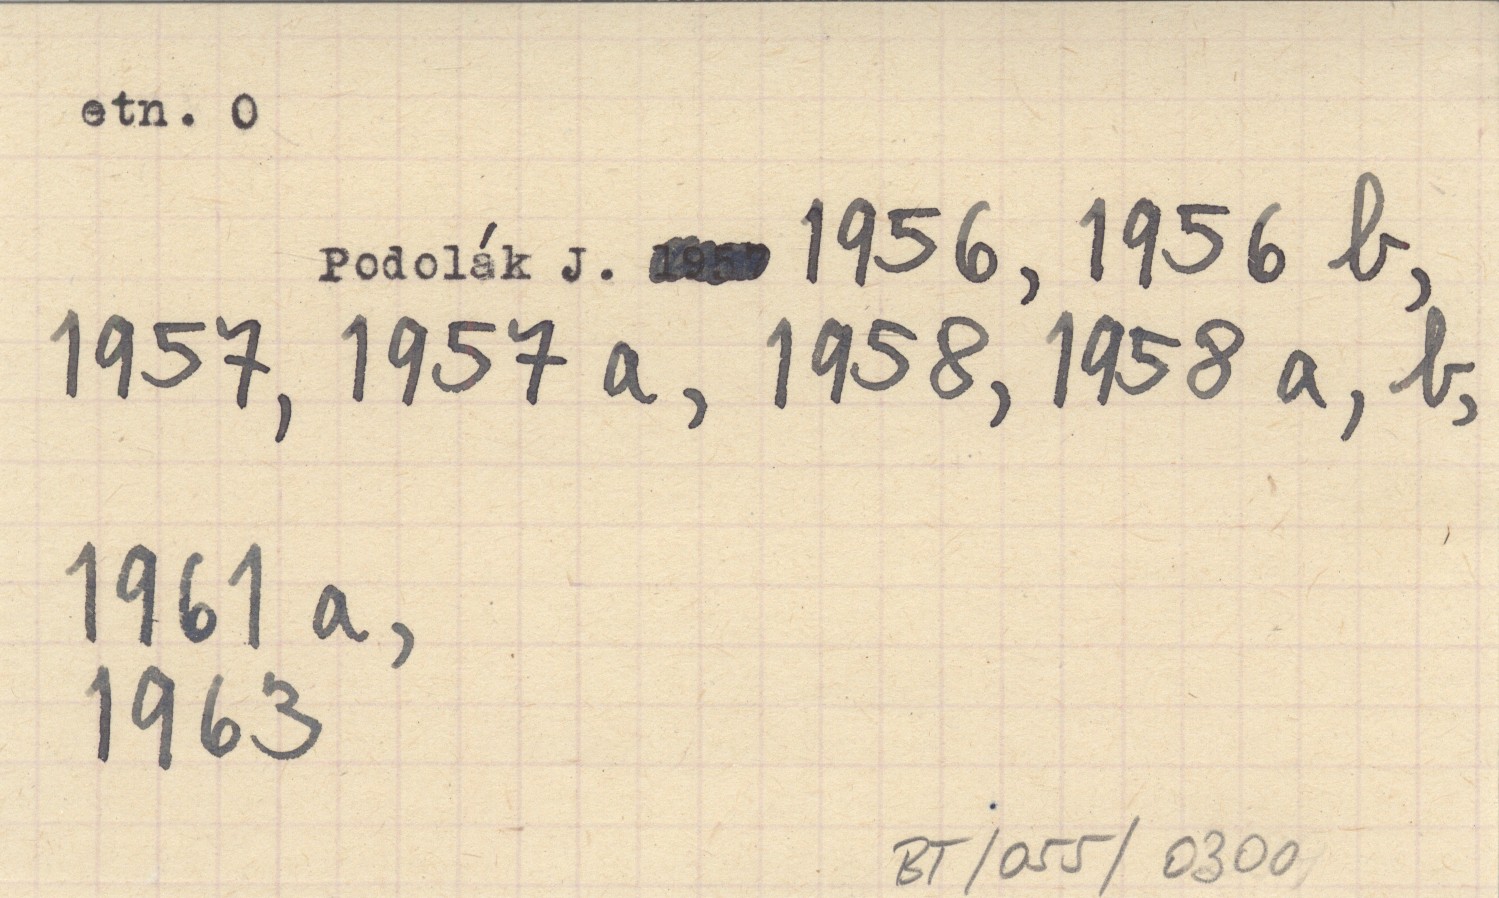 etn. O
Podolák J. 1956, 1956 b,
1957, 1957 a, 1958, 1958 a, b,
1961 a,
1963
BT/055/ 0300